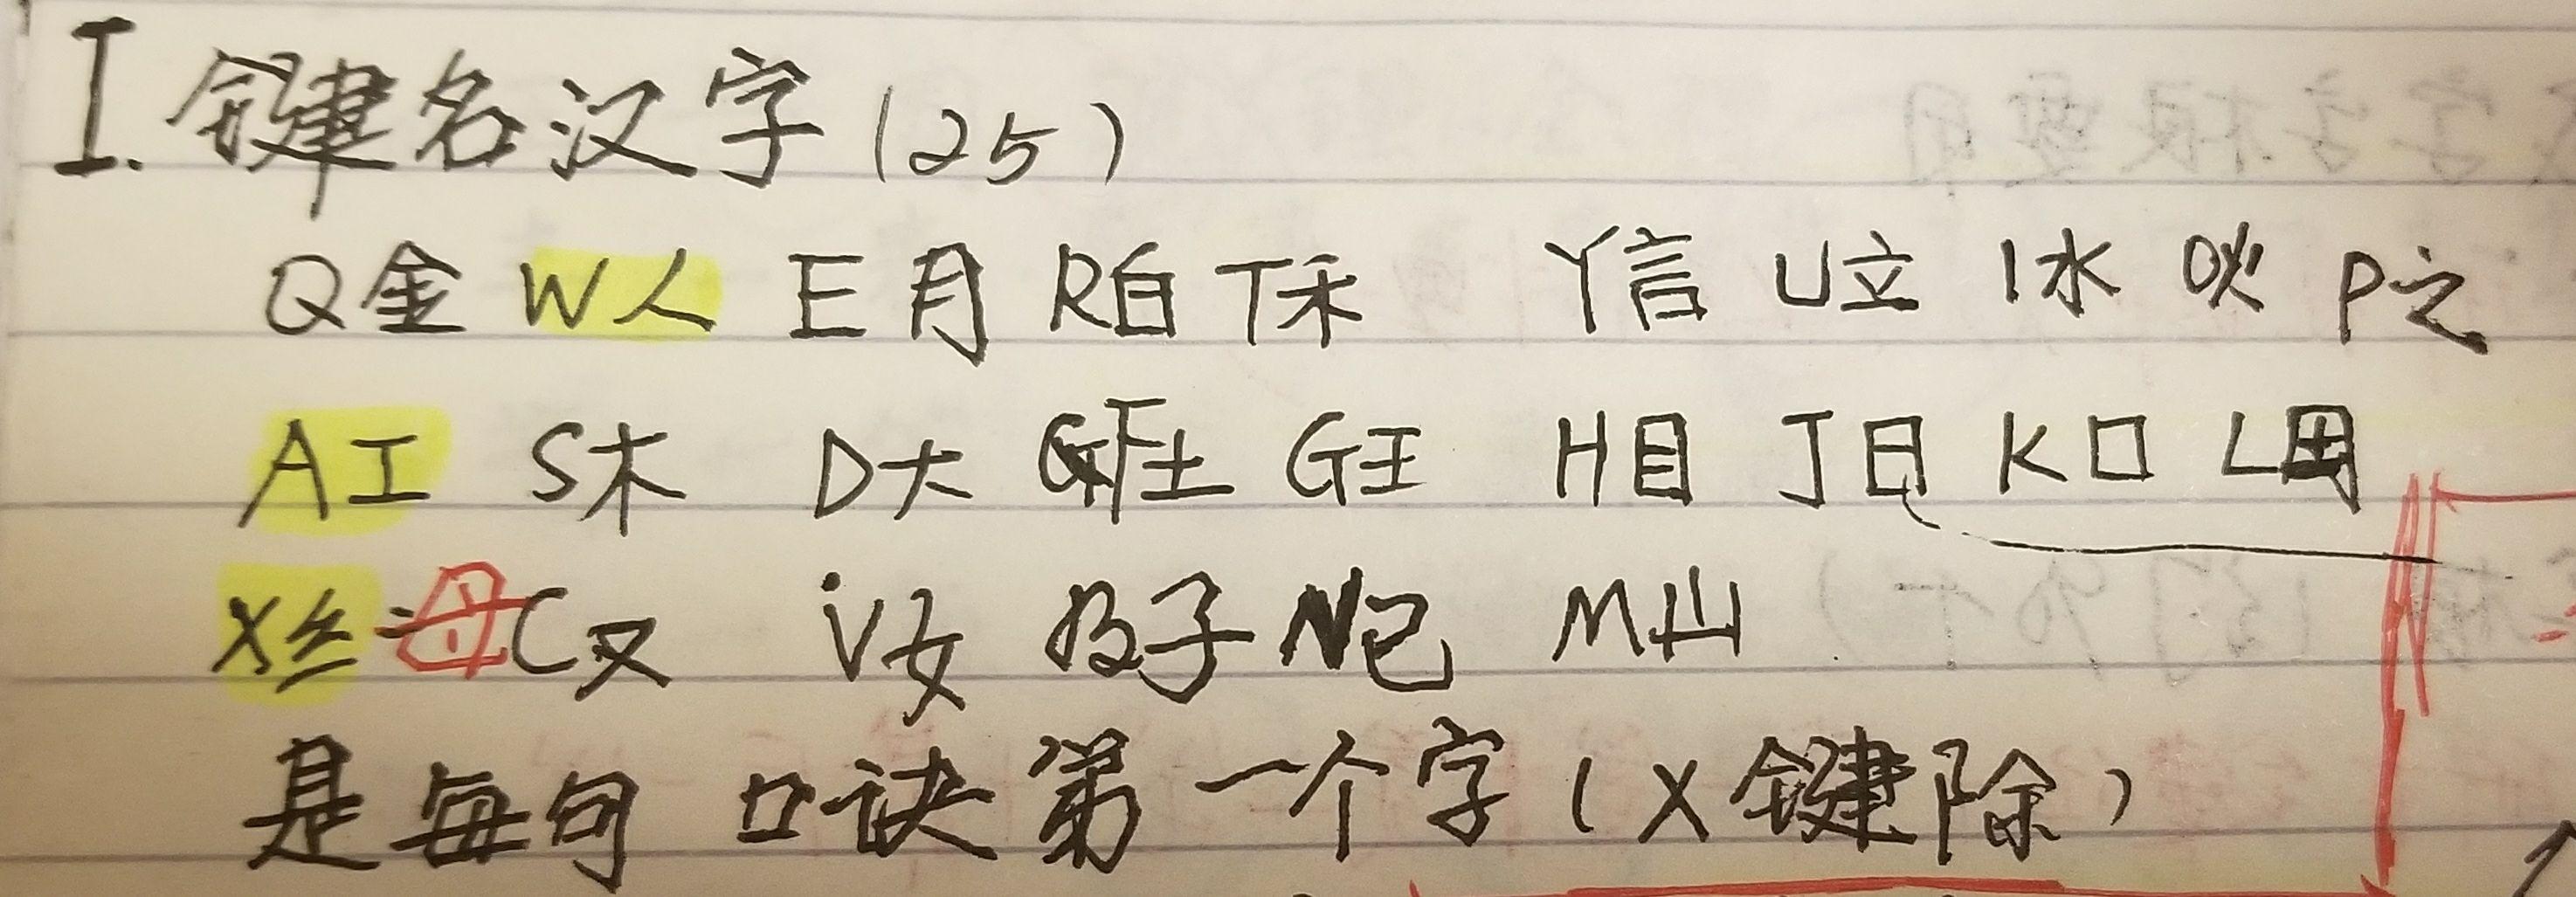 I. 键名汉字 (25)
Q金 W人 E月 R白 T禾 Y言 U立 I水 O火 P之
A工 S木 D大 F土 G王 H目 J日 K口 L田
X纟 母 C又 V女 B子 N己 M山
是每句口诀第一个字 (X键除)